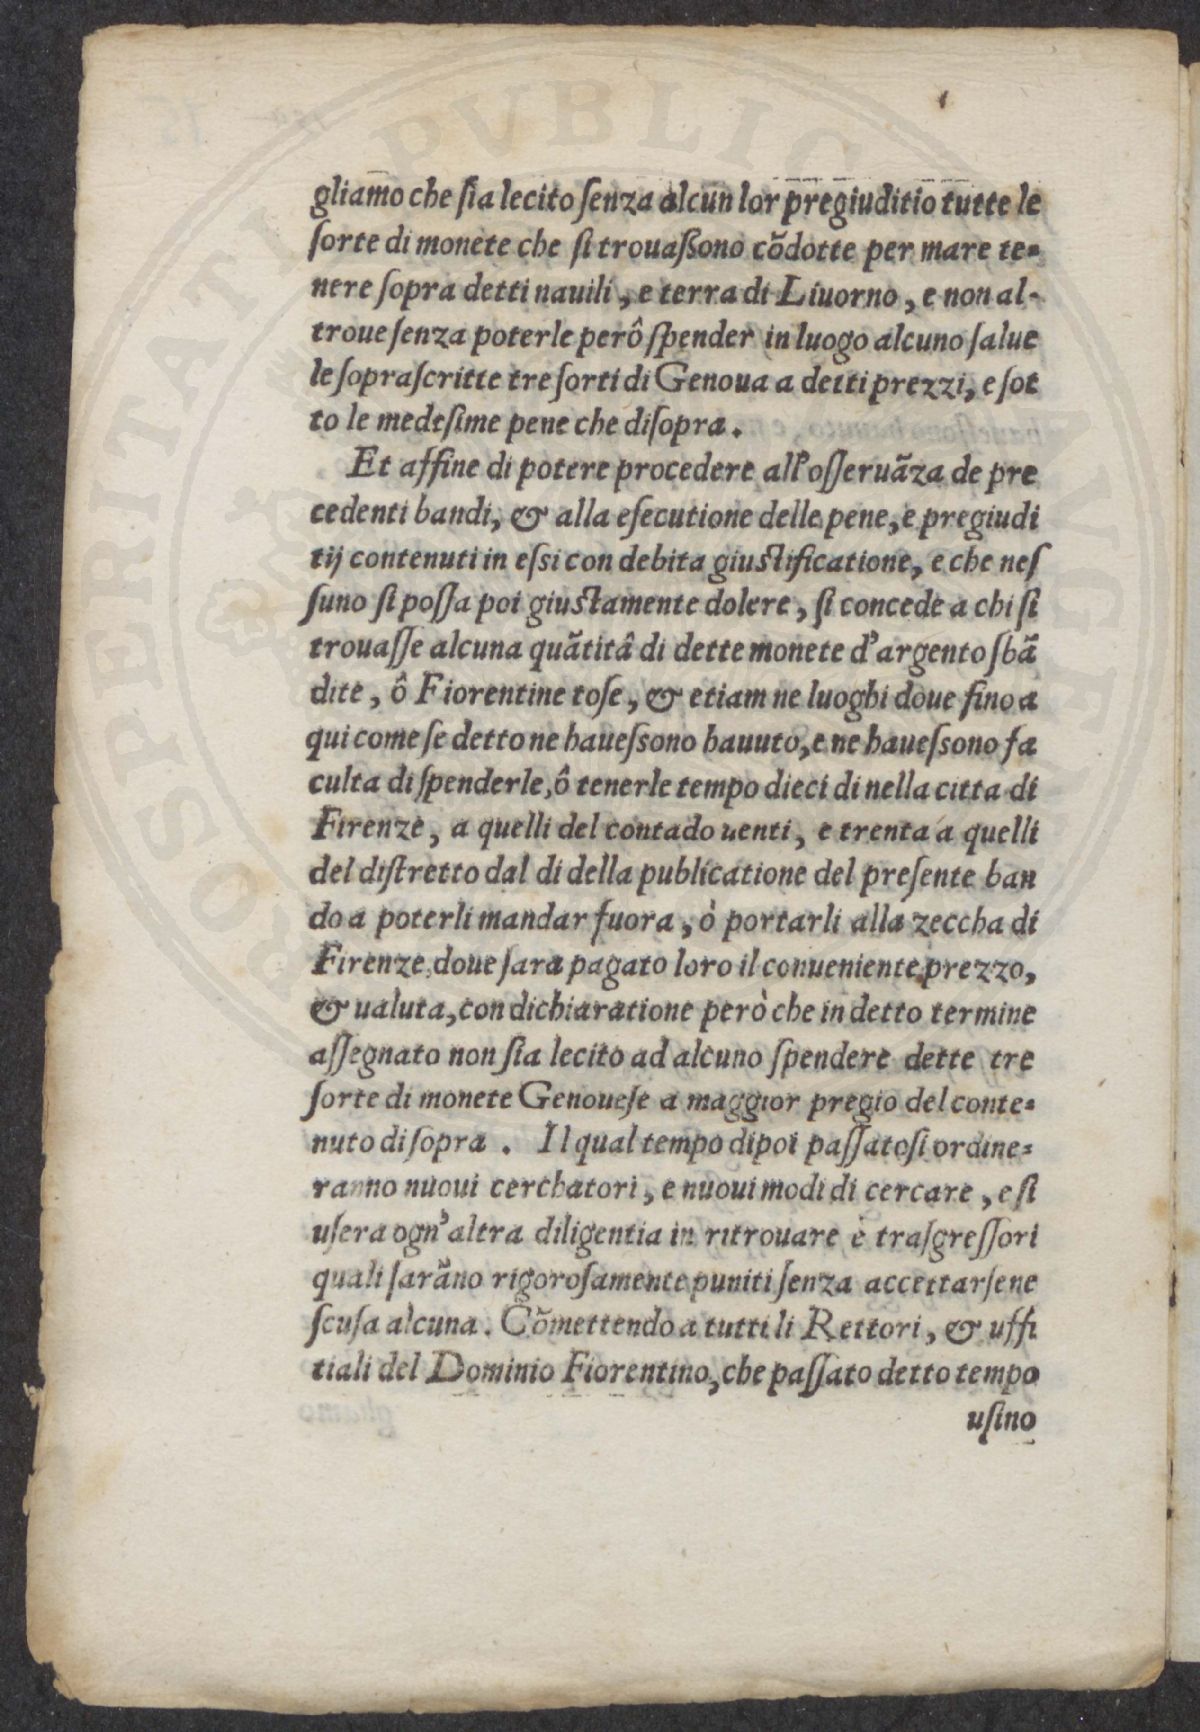 gliamo che ſia lecito ſenza alcun lor pregiuditio tutte le
ſorte di monete che ſi trouaßono cõdotte per mare te=
nere ſopra detti nauili, e terra di Liuorno, e non al-
troue ſenza poterle però ſpender in luogo alcuno ſalue
le ſopraſcritte tre ſorti di Genoua a detti prezzi, e ſot
to le medeſime pene che diſopra.
Et affine di potere procedere all'oſſeruãza de pre
cedenti bandi, & alla eſecutione delle pene, e pregiudi
tij contenuti in eſsi con debita giuſtificatione, e che neſ
ſuno ſi poſſa poi giuſtamente dolere, ſi concede a chi ſi
trouaſſe alcuna quãtitâ di dette monete d'argento ſbã
dite, ô Fiorentine toſe, & etiam ne luoghi doue fino a
qui come ſe detto ne haueſsono hauuto, e ne haueſsono fa
culta di ſpenderle, ô tenerle tempo dieci di nella citta di
Firenze, a quelli del contado uenti, e trenta a quelli
del diſtretto dal di della publicatione del preſente ban
do a poterli mandar fuora, ò portarli alla zeccha di
Firenze, doue ſara pagato loro il conueniente prezzo,
& ualuta, con dichiaratione però che in detto termine
aſſegnato non ſia lecito ad alcuno ſpendere dette tre
ſorte di monete Genoueſe a maggior pregio del conte=
nuto di ſopra. Il qual tempo dipoi paſſato ſi ordine=
ranno nuoui cerchatori, e nuoui modi di cercare, e ſi
uſera ogn'altra diligentia in ritrouare è traſgreſſori
quali ſarãno rigoroſamente puniti ſenza accettarſene
ſcuſa alcuna. Cõmettendo a tutti li Rettori, & uffi
tiali del Dominio Fiorentino, che paſſato detto tempo
uſino
PROSPERITATI PVBLIC